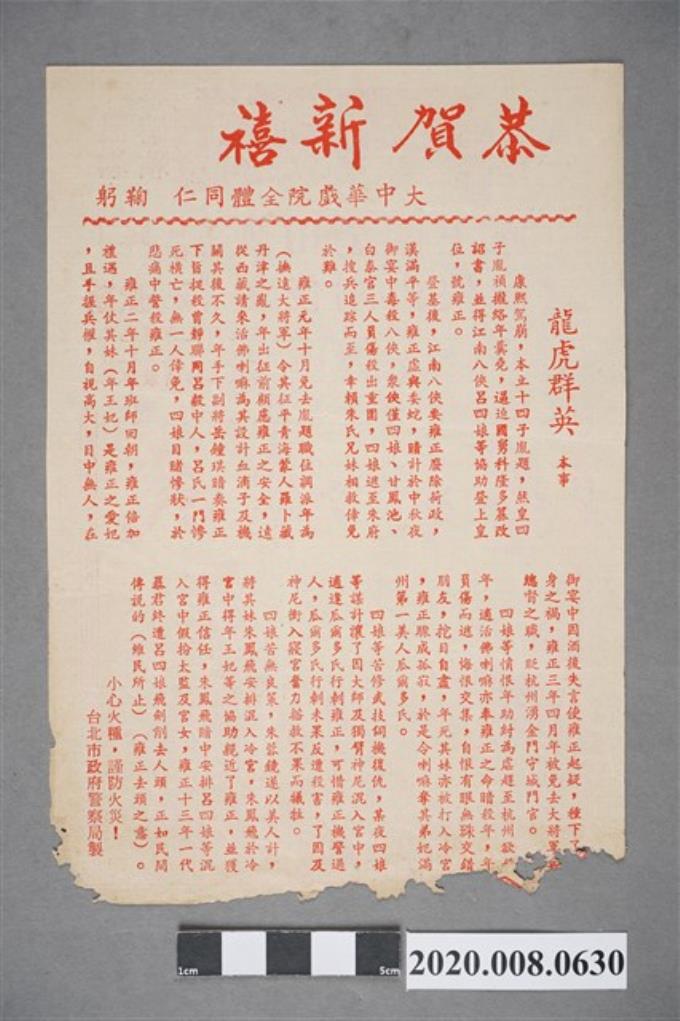 恭賀新禧
大中華戲院全體同仁 鞠躬
龍虎群英 本事
康熙駕崩，本立十四子胤題，然皇四
子胤禎攏絡年羹堯，逼迫國舅科隆多篡改
認書，並得江南八俠呂四娘等協助登上皇
位，號雍正。
登基後，江南八俠要雍正廢除苛政，
漢滿平等，雍正虛與委蛇，暗計於中秋夜
御宴中毒殺八俠，眾俠僅四娘、甘鳳池、
白泰官三人負傷殺出重圍，四娘逃至朱府
，搜兵追踪而至，幸賴朱氏兄妹相救倖免
於難。
雍正元年十月免去胤題職位調派年為
（撫遠大將軍）令其征平青海蒙人羅卜藏
丹津之亂，年出征前顧慮雍正之安全，遠
從西藏請來活佛喇嘛為其設計血滴子及機
關其後不久，年手下副將岳鐘琪暗奏雍正
下旨捉殺曾靜聯同呂毅中人，呂氏一門慘
死橫亡，無一人倖免，四娘目睹慘狀，於
悲痛中誓殺雍正。
雍正二年十月年班師回朝，雍正倍加
禮遇，年仗其妹（年王妃）是雍正之愛妃
，且手握兵權，自視高大，目中無人，在
御宴中因酒後失言使雍正起疑，種下了
身之禍，雍正三年四月年被免去大將軍
總督之職，貶杭州湧金門守城門官。
四娘等憤恨年助紂為虐趕至杭州欲
年，適活佛喇嘛亦奉雍正之命暗殺年，年
負傷而逃，悔恨交集，自恨有眼無珠交錯
朋友，挖目自盡，年死其妹亦被打入冷宮
，雍正驟成孤寂，於是令喇嘛奪其弟妃滿
州第一美人瓜爾多氏。
四娘等苦修武技伺機復仇，某夜四娘
等謀計讓了因大師及獨臂神尼混入宮中，
適逢瓜爾多氏行刺雍正，可惜雍正機警過
人，瓜爾多氏行刺未果反遭殺害，了因及
神尼衝入寢宮奮力搶救不果而犧牲。
四娘苦無良策，朱蓉鏡遂以美人計，
將其妹朱鳳飛安排混入冷宮，朱鳳飛於冷
宮中得年王妃等之協助親近了雍正，並獲
得雍正信任，朱鳳飛暗中安排呂四娘等混
入宮中假扮太監及宮女，雍正十三年一代
暴君終遭呂四娘飛劍削去人頭，正如民間
傳說的（維民所止）（雍正去頭之意）。
小心火種，謹防火災！
台北市政府警察局製
1cm 5cm
2020.008.0630